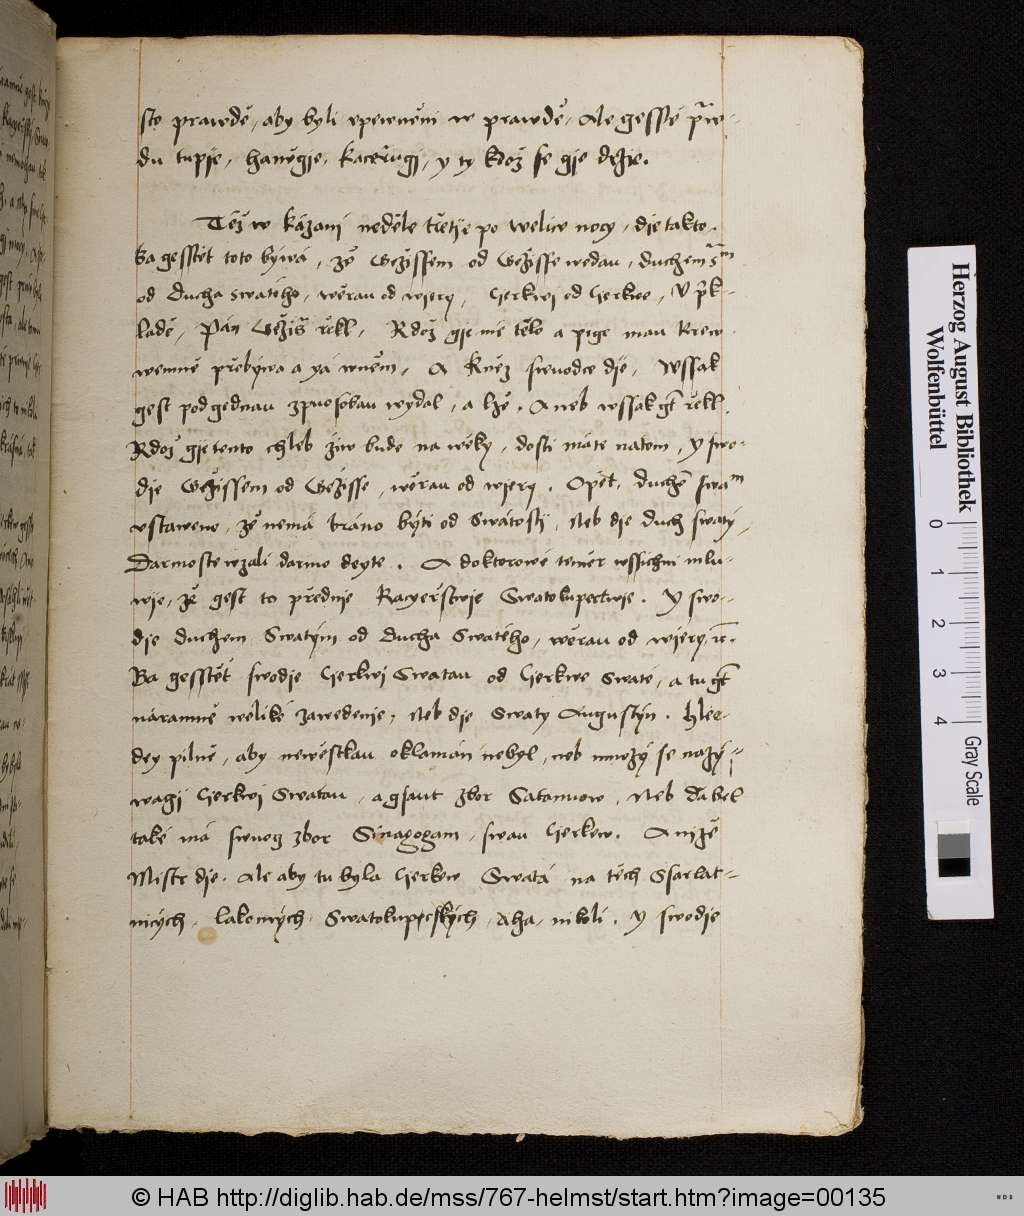 sto prawdě, aby byli vpewněni w prawdě, Ale gesstě prw-
du tupje, haněgje, kacéřugj, y ty kdož se gje držie.
Těž w kázaní neděle třetije po welice nocy, die takto.
Ba gesstět toto bywá, že Gežissem od Gežisse wedau, duchem Sm
od Ducha swateho, wěrau od wjery, Cjerkwj od Cjerkwe, y přik-
ladě, Pán Gežiš řekl, Kdož gje mé tělo a pige mau krew
wemně přebýwa a yá wněm, A Kněz swuodce die, Wssak
gest pod gednau zpuosobau wydal, a lže. A neb wssak gt řekl,
Kdož gje tento chléb žiw bude na wěky, dosti máte natom, y swo-
die Gežissem od Gežisse, wěrau od wjery. Opět, duchem swam
vstaweno, že nemá bráno býti od Swátosti, Neb die duch swatý,
Darmo ste wzali darmo deyte. A doktorowé teměr wssichni mlu-
wie, že gest to přednie Kacyeřstwie Swatokupectwie. Y swo-
die duchem Swatým od ducha Swatého, wěrau od wjery, ic.
Ba gesstět swodie Cjerkwj Swatau od Cjerkwe Swaté, a tu gt
náramně weliké zawedenie, Neb die Swaty Augustýn. Hle-
dey pilně, aby newěstkau oklamán nebyl, neb mnozý se nazý-
wagi Cjerkwj Swatau, a gsaut zbor Satanuow, Neb Dábel
také má swuog zbor Sinagogam, swau Cjerkew. A niže
Mistr die. Ale aby tu byla Cjerkew Swatá na těch Ssarlat-
nicých, lakomých, Swatokupeckých, Aha, nikoli. y swodie
Herzog August Bibliothek
Wolfenbüttel
0 1 2 3 4
Gray Scale
© HAB http://diglib.hab.de/mss/767-helmst/start.htm?image=00135